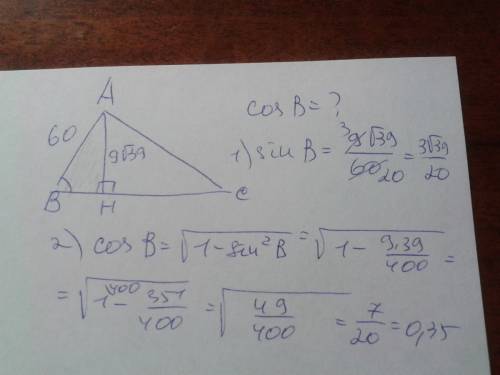 A
60
9√39
B H C
cos B = ?
1) sin B = 9√39/60 = 3√39/20
3
20
2) cos B = √(1 - sin²B) = √(1 - 9·39/400) =
= √(1 - 351/400) = √(49/400) = 7/20 = 0,35
400